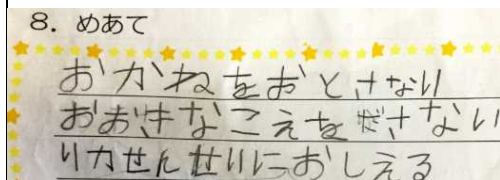 8. めあて
おかねをおとさない
おおきなこえをださない
りかせんせいにおしえる